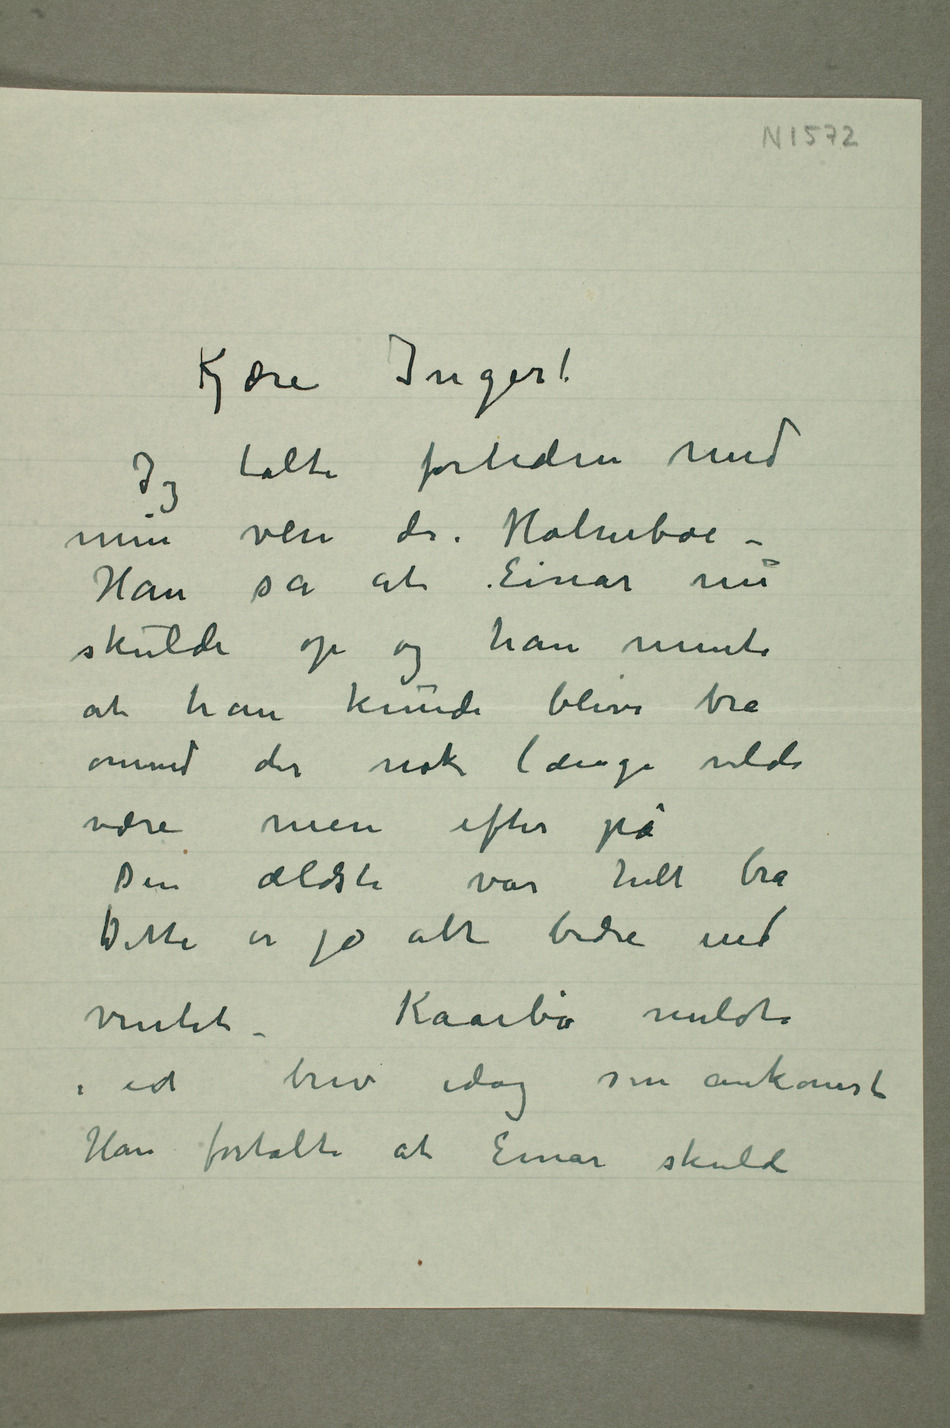 N 1572
Kjære Inger!
Jg talte fortiden med
min ven dr. Holmboe –
Han sa at Einar nu
skulde op og han mente
at han kunde blive bra
omend der nok længe vilde
være men efter på
Den ældste var helt bra
Dette er jo alt bedre end
ventet – Kaarbø meldte
i et brev idag sin ankomst
Han fortalte at Einar skulde